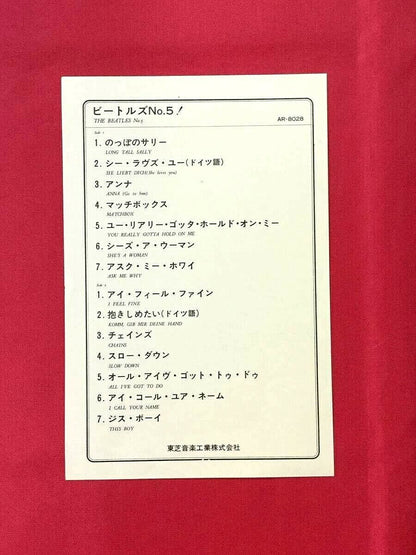 ビートルズNo.5!
THE BEATLES No5
AR-8028
Side 1
1. のっぽのサリー
LONG TALL SALLY
2. シー・ラヴズ・ユー(ドイツ語)
SIE LIEBT DICH(She loves you)
3. アンナ
ANNA (Go to him)
4. マッチボックス
MATCHBOX
5. ユー・リアリー・ゴッタ・ホールド・オン・ミー
YOU REALLY GOTTA HOLD ON ME
6. シーズ・ア・ウーマン
SHE'S A WOMAN
7. アスク・ミー・ホワイ
ASK ME WHY
Side 2
1. アイ・フィール・ファイン
I FEEL FINE
2. 抱きしめたい(ドイツ語)
KOMM, GIB MIR DEINE HAND
3. チェインズ
CHAINS
4. スロー・ダウン
SLOW DOWN
5. オール・アイヴ・ゴット・トゥ・ドゥ
ALL I'VE GOT TO DO
6. アイ・コール・ユア・ネーム
I CALL YOUR NAME
7. ジス・ボーイ
THIS BOY
東芝音楽工業株式会社